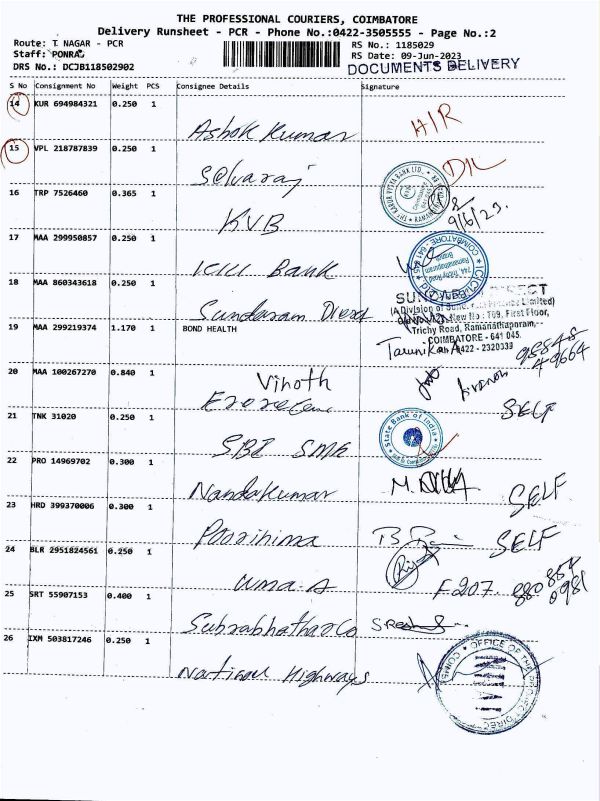 THE PROFESSIONAL COURIERS, COIMBATORE
Delivery Runsheet - PCR - Phone No.:0422-3505555 - Page No.:2
Route: T. NAGAR - PCR
Staff: PONRAJ
DRS No.: DCJB118502902
RS No.: 1185029
RS Date: 09-Jun-2023
DOCUMENTS DELIVERY
S No Consignment No Weight PCS Consignee Details Signature
14 KUR 694984321 0.250 1
Ashok Kumar
15 VPL 218787839 0.250 1
Selvaraj
D/L
16 TRP 7526460 0.365 1
KVB
9/6/23.
17 MAA 299950857 0.250 1
ICICI Bank
18 MAA 860343618 0.250 1
Sundaram Direct
Trichy Road, Ramanathapuram,
COIMBATORE - 641 045.
0422 - 2320333
19 MAA 299219374 1.170 1 BOND HEALTH
Tarunika.A
20 MAA 100267270 0.840 1
Vinoth
SELF
21 TNK 31020 0.250 1
SBI SME
State Bank of India
22 PRO 14969702 0.300 1
Nandakumar
SELF
23 HRD 399370006 0.300 1
SELF
24 BLR 2951824561 0.250 1
Uma.A
F207.
25 SRT 55907153 0.400 1
26 IXM 503817246 0.250 1
National Highways
OFFICE OF THE PROJECT DIRECTOR